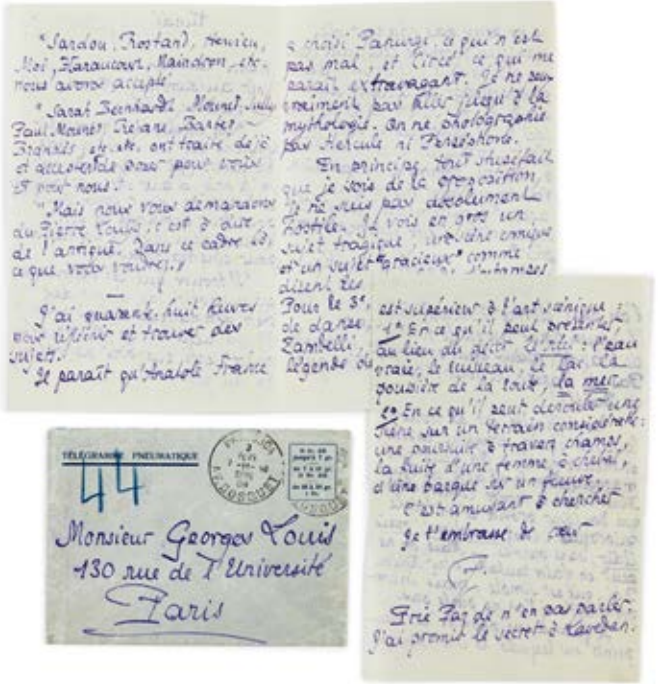 "Sardou, Rostand, Hervieu,
Moi, Haraucourt, Maindron, etc.
nous avons accepté.
"Sarah Bernhardt, Mounet-Sully
Paul Mounet, Réjane, Bartet
Brandès, etc. etc. ont traité déjà
et accepté de poser pour vous
et pour nous.
"Mais nous vous demandons
du Pierre Louÿs; c'est à dire
de l'antique. Dans ce cadre là,
ce que vous voudrez."
J'ai quarante huit heures
pour réfléchir et trouver des
sujets.
Il paraît qu'Anatole France
a choisi Panurge, ce qui n'est
pas mal, et Circé ce qui me
paraît extravagant. Je ne peux
vraiment pas aller jusqu'à la
mythologie. On ne photographie
pas Hercule ni Perséphone.
En principe, tout
que je sois de la proposition
je ne suis pas absolument
hostile. Je vois en gros un
sujet tragique, une scène comique
et un sujet "gracieux" comme
disent les
Pour le 3e,
de danse,
Zambelli,
légende de
est supérieur à l'art scénique:
1° En ce qu'il peut présenter,
au lieu du décor le vrai: l'eau
vraie, le ruisseau, le lac, la
poussière de la route, la mer.
2° En ce qu'il peut dérouler une
scène sur un terrain considérable:
une poursuite à travers champs,
la fuite d'une femme à cheval,
d'une barque sur un fleuve.
C'est amusant à chercher
Je t'embrasse de cœur
P.
Prie Paz de n'en pas parler.
J'ai promis le secret à Lavedan.
TÉLÉGRAMME PNEUMATIQUE
44
Monsieur Georges Louis
130 rue de l'Université
Paris